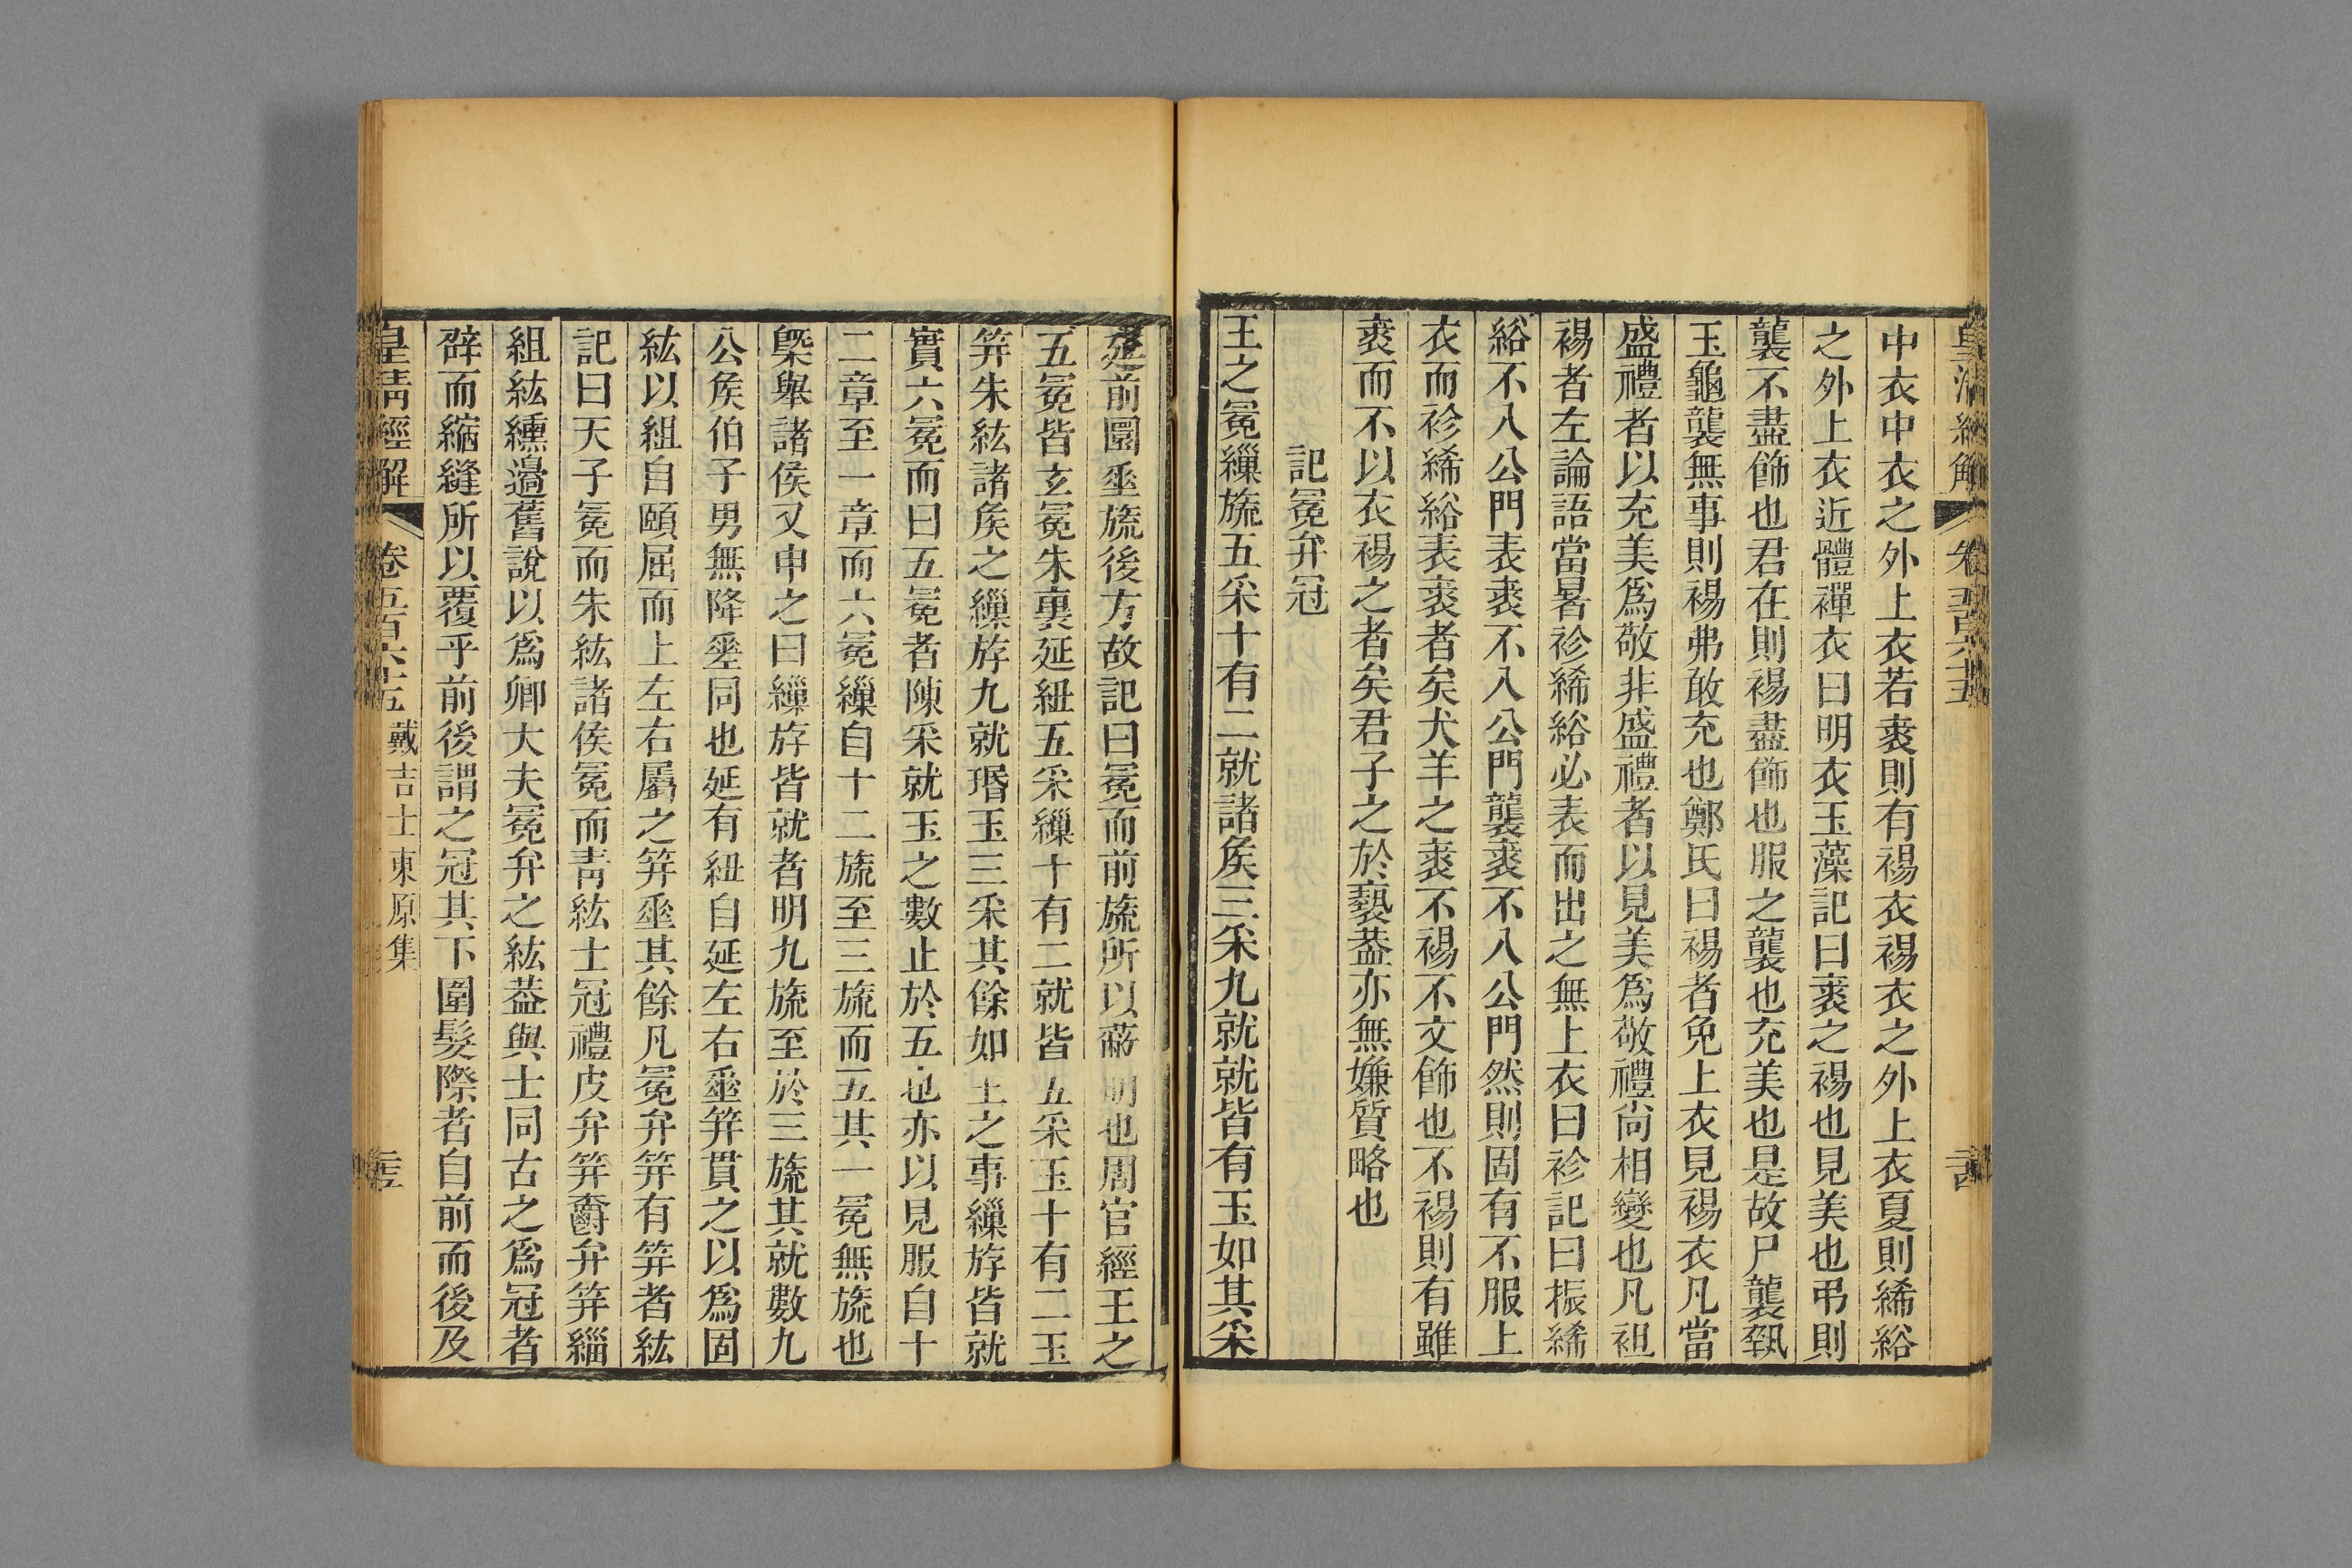 皇清經解
卷五百六十五
中衣中衣之外上衣若裘則有裼衣裼衣之外上衣夏則絺綌
之外上衣近體襌衣曰明衣玉藻記曰裘之裼也見美也弔則
襲不盡飾也君在則裼盡飾也服之襲也充美也是故尸襲執
玉龜襲無事則裼弗敢充也鄭氏曰裼者免上衣見裼衣凡當
盛禮者以充美爲敬非盛禮者以見美爲敬禮尙相變也凡袒
裼者左論語當暑袗絺綌必表而出之無上衣曰袗記曰振絺
綌不入公門表裘不入公門襲裘不入公門然則固有不服上
衣而袗絺綌表裘者矣犬羊之裘不裼不文飾也不裼則有雖
裘而不以衣裼之者矣君子之於褻葢亦無嫌質略也
記冕弁冠
王之冕繅旒五采十有二就諸矦三采九就就皆有玉如其采
延前圜垂旒後方故記曰冕而前旒所以蔽明也周官經王之
五冕皆玄冕朱裏延紐五采繅十有二就皆五采玉十有二玉
筓朱紘諸矦之繅斿九就瑉玉三采其餘如王之事繅斿皆就
實六冕而曰五冕者陳采就玉之數止於五也亦以見服自十
二章至一章而六冕繅自十二旒至三旒而五其一冕無旒也
槩舉諸侯又申之曰繅斿皆就者明九旒至於三旒其就數九
公矦伯子男無降𡍮同也延有紐自延左右垂筓貫之以爲固
紘以組自頤屈而上左右屬之筓垂其餘凡冕弁筓有筓者紘
記曰天子冕而朱紘諸侯冕而靑紘士冠禮皮弁筓爵弁筓緇
組紘纁邊舊說以爲卿大夫冕弁之紘葢與士同古之爲冠者
辟而縮縫所以覆乎前後謂之冠其下圍髮際者自前而後及
皇淸經解
卷五百六十五
戴吉士東原集